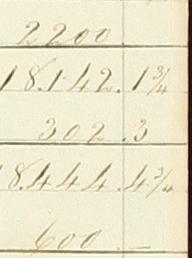 2200.
18.142.1 3/4
302.3
18.444.4 3/4
600.—